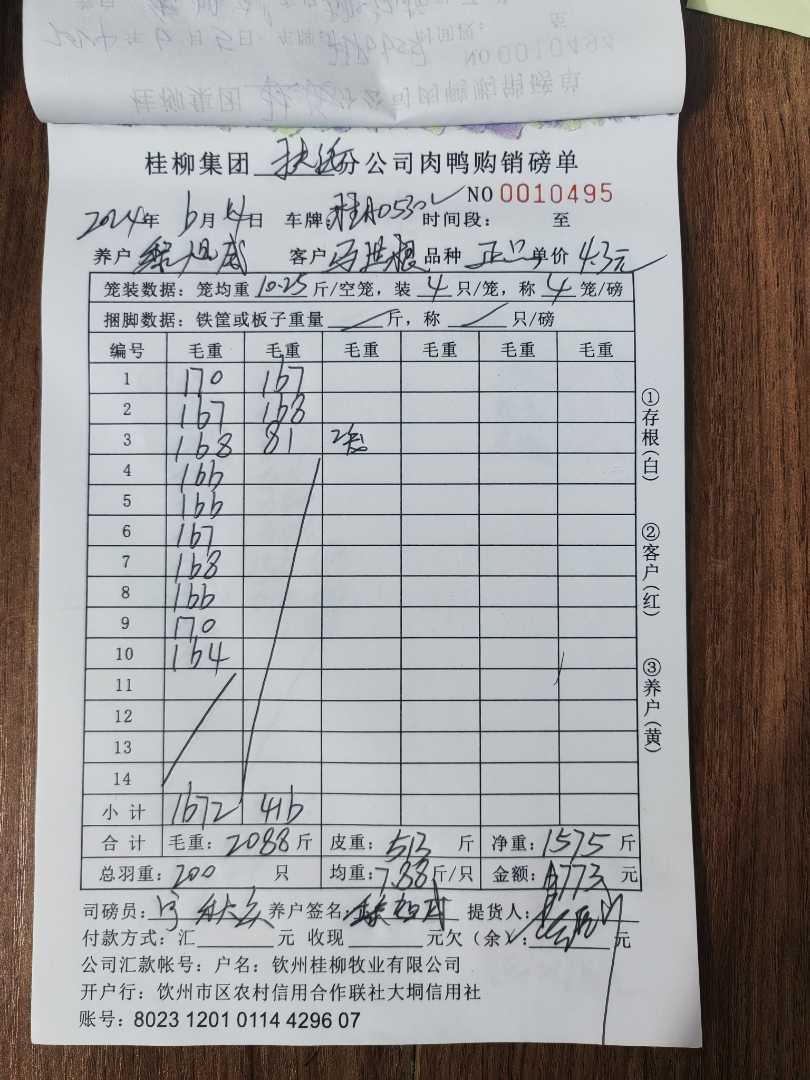 桂柳集团 扶绥分公司肉鸭购销磅单
NO 0010495
2024年 6月 4日 车牌:桂A0530 时间段: 至
养户 客户 马 根 品种 正品 单价 4.3元
笼装数据: 笼均重 10.25 斤/空笼, 装 4 只/笼, 称 4 笼/磅
捆脚数据: 铁筐或板子重量 斤, 称 只/磅
编号 毛重 毛重 毛重 毛重 毛重 毛重
1 170 167
2 167 168
3 168 81 2笼
4 166
5 166
6 167
7 168
8 166
9 170
10 164
11
12
13
14
小计 1672 416
合计 毛重: 2088 斤 皮重: 513 斤 净重: 1575 斤
总羽重: 200 只 均重: 7.88 斤/只 金额: 6773 元
司磅员: 养户签名: 提货人:
付款方式: 汇 元 收现 元欠(余): 元
公司汇款帐号: 户名: 钦州桂柳牧业有限公司
开户行: 钦州市区农村信用合作联社大垌信用社
账号: 8023 1201 0114 4296 07
①存根(白)
②客户(红)
③养户(黄)